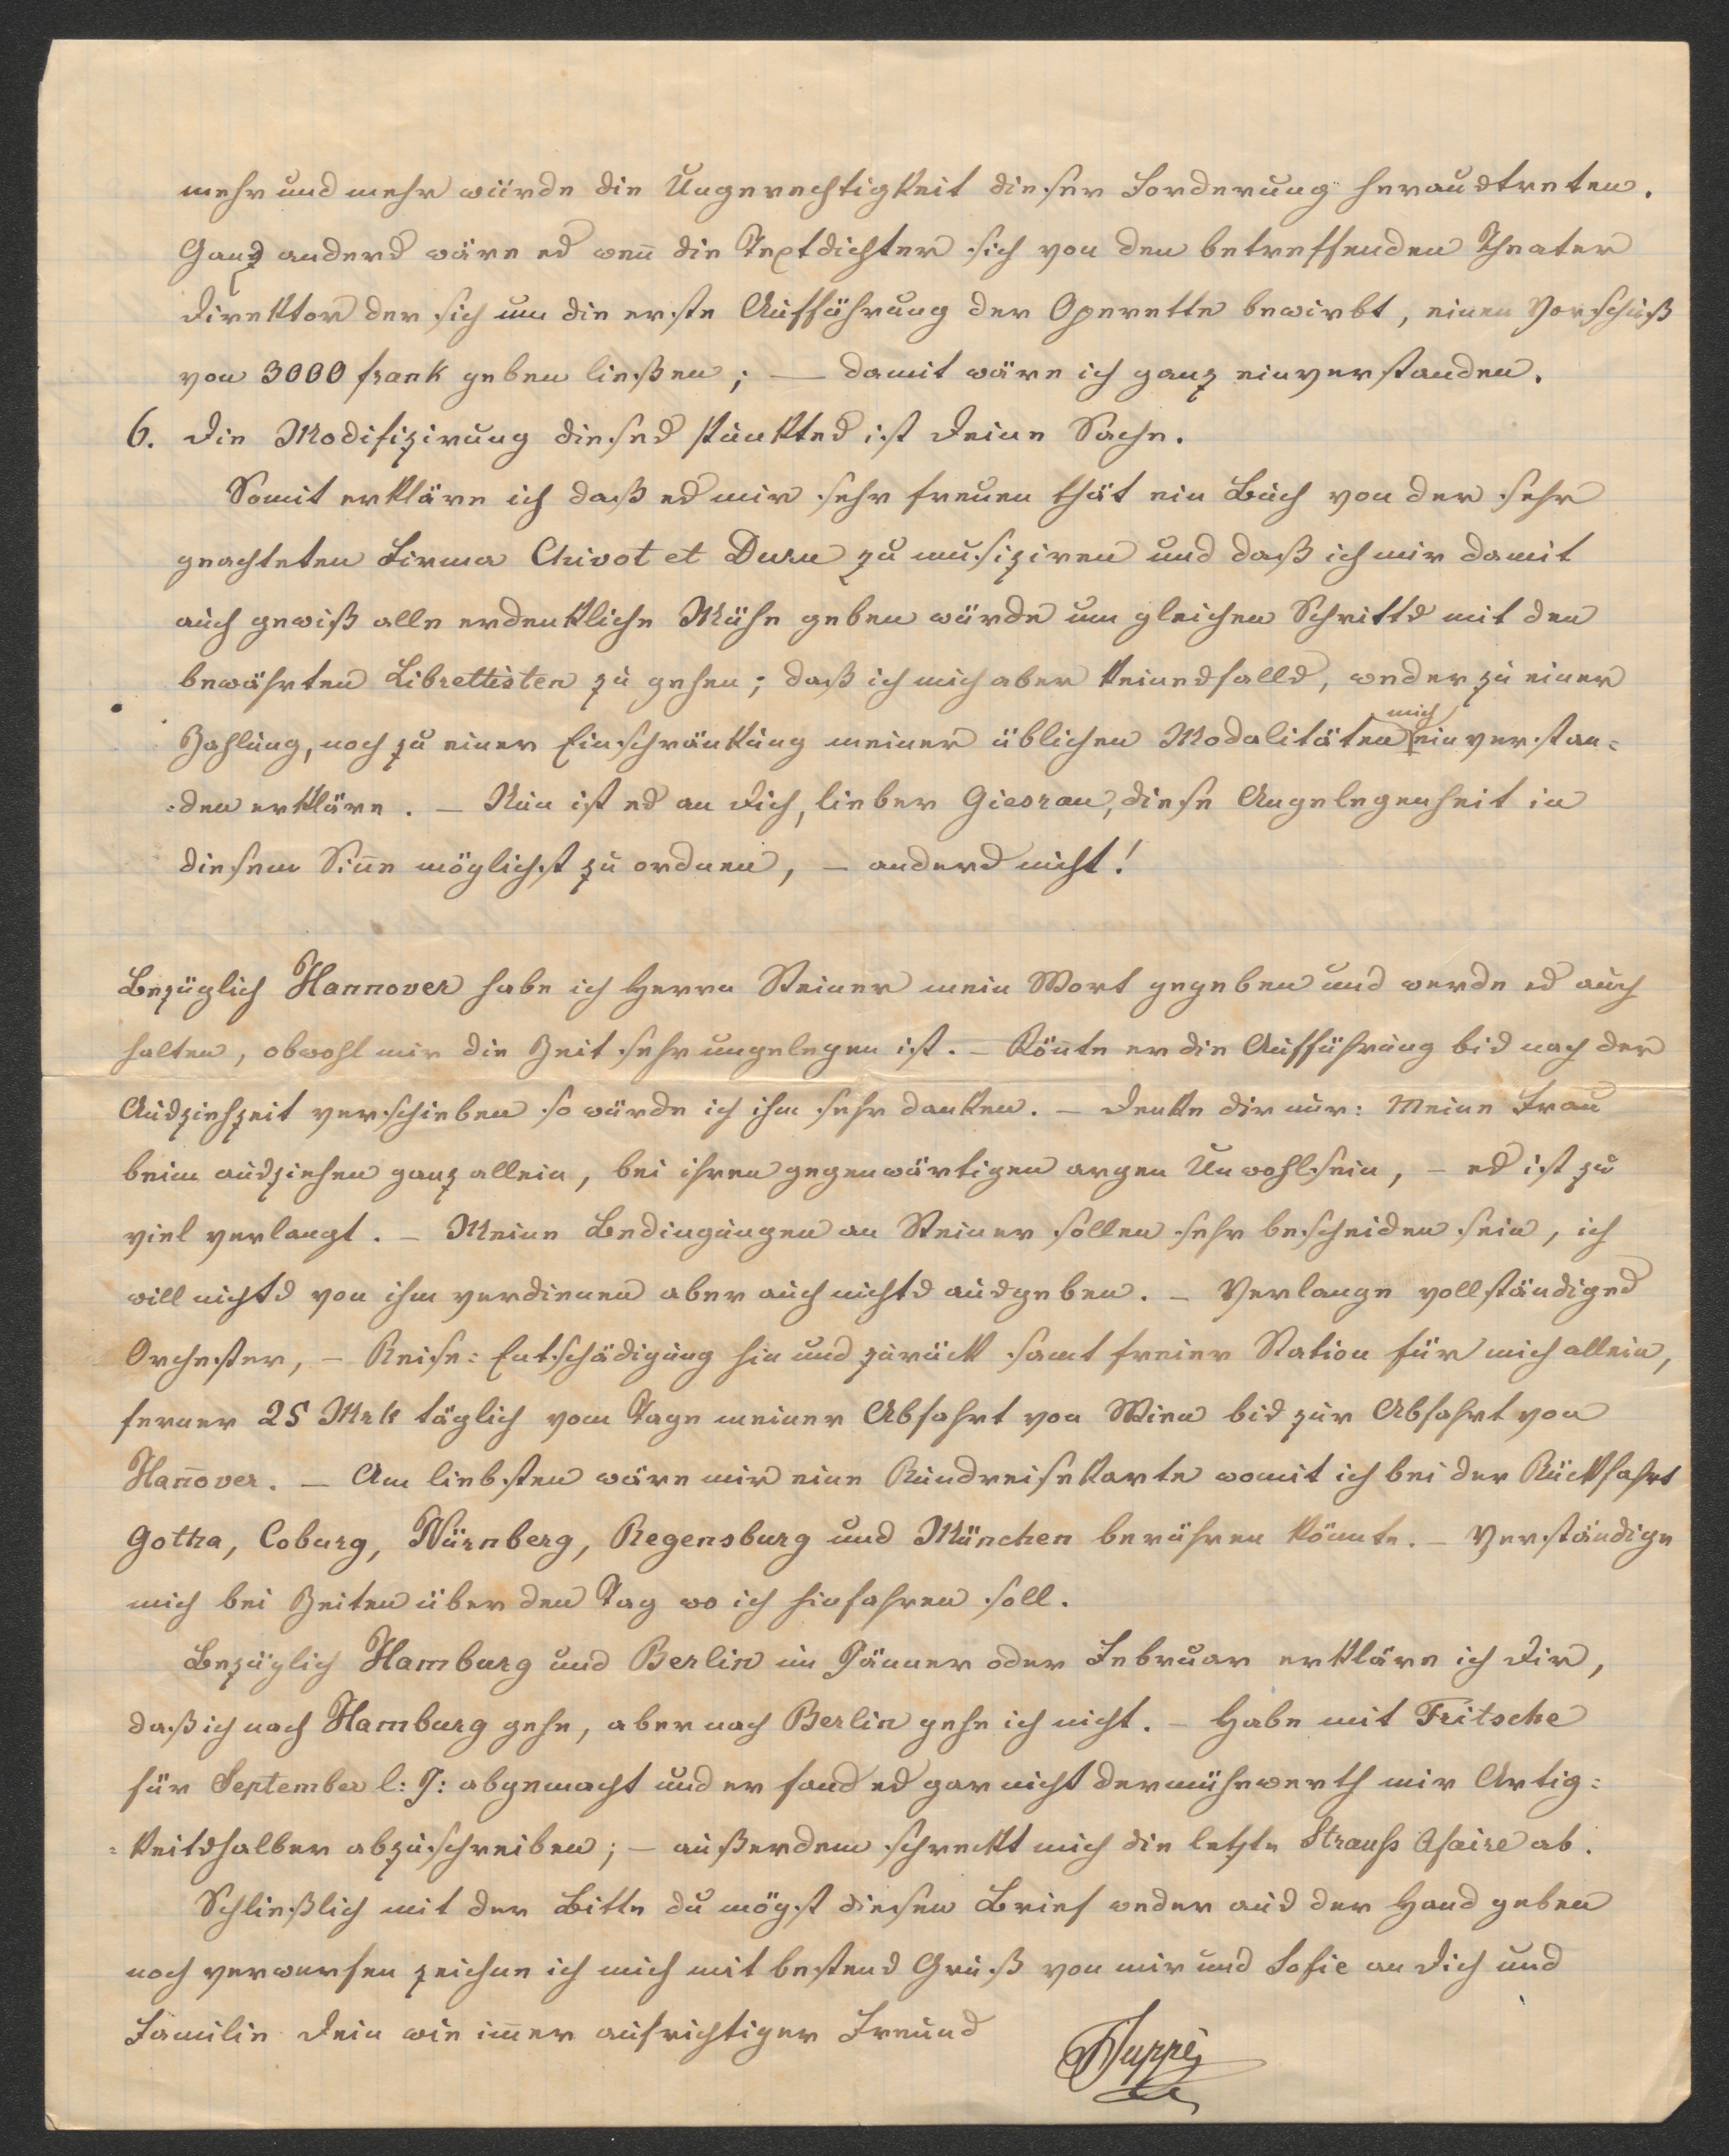 mehr und mehr würde die Ungerechtigkeit dieser Forderung heraustreten.
Ganz anders wäre es wen̄ die Textdichter sich von den betreffenden Theater
Direktor der sich um die erste Aufführung der Operette bewirbt, einen Vorschuß
von 3000 frank geben ließen; — damit wäre ich ganz einverstanden.
6. Die Modifizirung dieses Punktes ist Deine Sache.
Somit erkläre ich daß es mir sehr freuen thät ein Buch von der sehr
geachteten Firma Chivot et Duru zu musiziren und daß ich mir damit
auch gewiß alle erdenkliche Mühe geben würde um gleichen Schritts mit den
bewährten Librettisten zu gehen; daß ich mich aber keinesfalls, weder zu einer
Zahlung, noch zu einer Einschränkung meiner üblichen Modalitäten mich einverstan=
=den erkläre. — Nun ist es an Dich, lieber Giesrau, diese Angelegenheit in
diesem Sin̄e möglichst zu ordnen, — anders nicht!
Bezüglich Hannover habe ich Herrn Steiner mein Wort gegeben und werde es auch
halten, obwohl mir die Zeit sehr ungelegen ist. — Kön̄te er die Aufführung bis nach der
Ausziehzeit verschieben so würde ich ihm sehr danken. — Denke dir nur: Meine Frau
beim ausziehen ganz allein, bei ihren gegenwärtigen argen Unwohlsein, — es ist zu
viel verlangt. — Meine Bedingungen an Steiner sollen sehr bescheiden sein, ich
will nichts von ihm verdienen aber auch nichts ausgeben. — Verlange vollständiges
Orchester, — Reise=Entschädigung hin und zurück samt freier Station für mich allein,
ferner 25 Mrk täglich vom Tage meiner Abfahrt von Wien bis zur Abfahrt von
Han̄over. — Am liebsten wäre mir eine Rundreisekarte womit ich bei der Rückfahrt
Gotha, Coburg, Nürnberg, Regensburg und München berühren könnte. — Verständige
mich bei Zeiten über den Tag wo ich hinfahren soll.
Bezüglich Hamburg und Berlin im Jänner oder Februar erkläre ich Dir,
daß ich nach Hamburg gehe, aber nach Berlin gehe ich nicht. — Habe mit Fritsche
für September l: J: abgemacht und er fand es gar nicht dermühewerth mir Artig=
=keitshalber abzuschreiben; — außerdem schreckt mich die letzte Strauss Afaire ab.
Schließlich mit der Bitte du mögst diesen Brief weder aus der Hand geben
noch verwerfen zeichne ich mich mit bestens Gruß von mir und Sofie an Dich und
Familie Dein wie im̄er aufrichtiger Freund
FSuppé